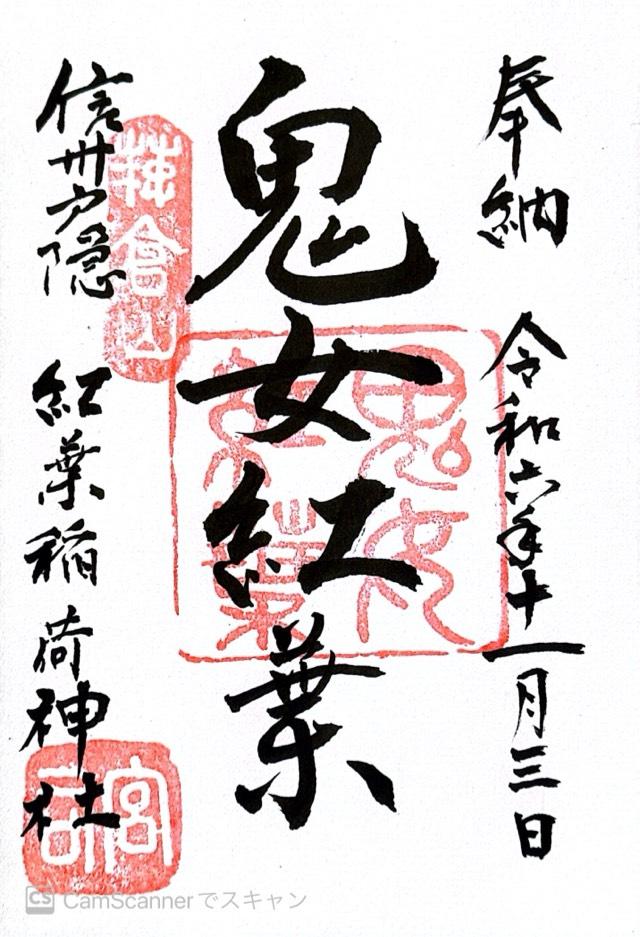 奉納 令和六年十一月三日
鬼女紅葉
信州戸隠 紅葉稲荷神社
鬼女
紅葉
宮司
CS CamScannerでスキャン